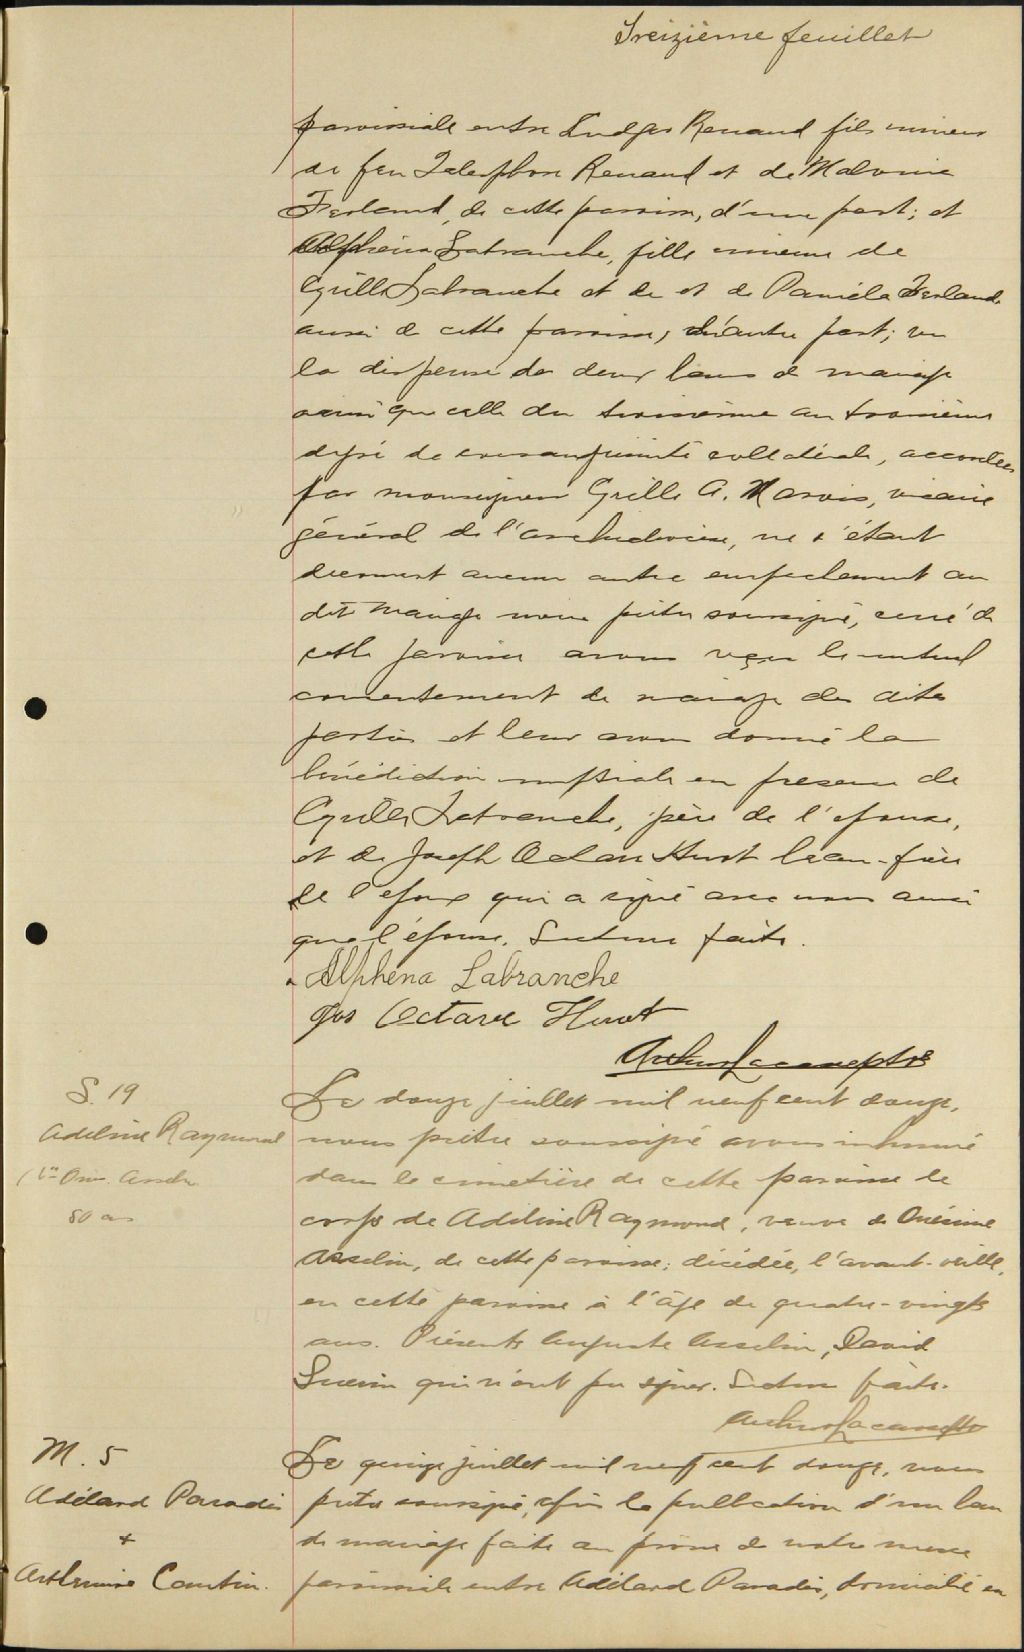 Treizième feuillet
paroissiale entre Ludger Renaud fils mineur
de feu Télesphore Renaud et de Malvina
Ferland, de cette paroisse, d'une part; et
Alphéna Labranche, fille mineure de
Cyrille Labranche et de et de Paméla Ferland
aussi de cette paroisse, d'autre part; vu
la dispense de deux bans de mariage
ainsi que celle du troisième au troisième
degré de consanguinité collatérale, accordées
par monseigneur Cyrille A. Marois, vicaire
général de l'archidiocèse, ne s'étant
découvert aucun autre empêchement au
dit mariage nous prêtre soussigné, curé de
cette paroisse avons reçu le mutuel
consentement de mariage des dites
parties et leur avons donné la
bénédiction nuptiale en présence de
Cyrille Labranche, père de l'épouse,
et de Joseph Octave Huot beau-frère
de l'époux qui a signé avec nous ainsi
que l'épouse. Lecture faite.
Alphéna Labranche
Jos Octave Huot
Arthur ptre
S. 19
Adeline Raymond
Asselin
80 ans
Le douze juillet mil neuf cent douze,
nous prêtre soussigné avons inhumé
dans le cimetière de cette paroisse le
corps de Adeline Raymond, veuve de Onésime
Asselin, de cette paroisse; décédée, l'avant-veille,
en cette paroisse à l'âge de quatre-vingts
ans. Présents Auguste Asselin, David
qui n'ont pu signer. Lecture faite.
Arthur ptre
M. 5
Adélard Paradis
+
Arthémise Cantin.
Le quinze juillet mil neuf cent douze, nous
prêtre soussigné, après la publication d'un ban
de mariage faite au prône de notre messe
paroissiale entre Adélard Paradis, domicilié en